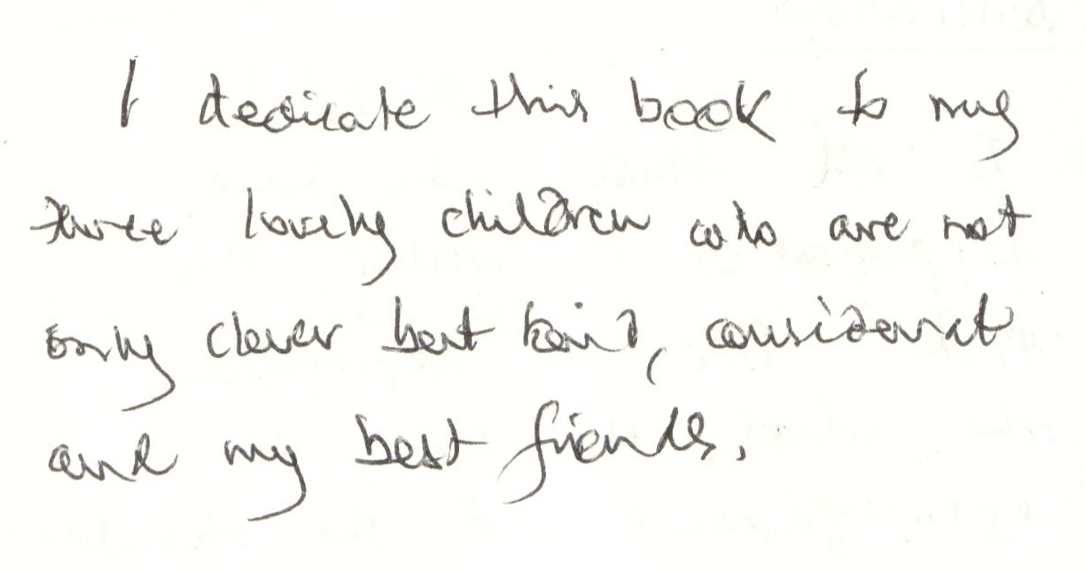 I dedicate this book to my
three lovely children who are not
only clever but kind, considerat
and my best friends.